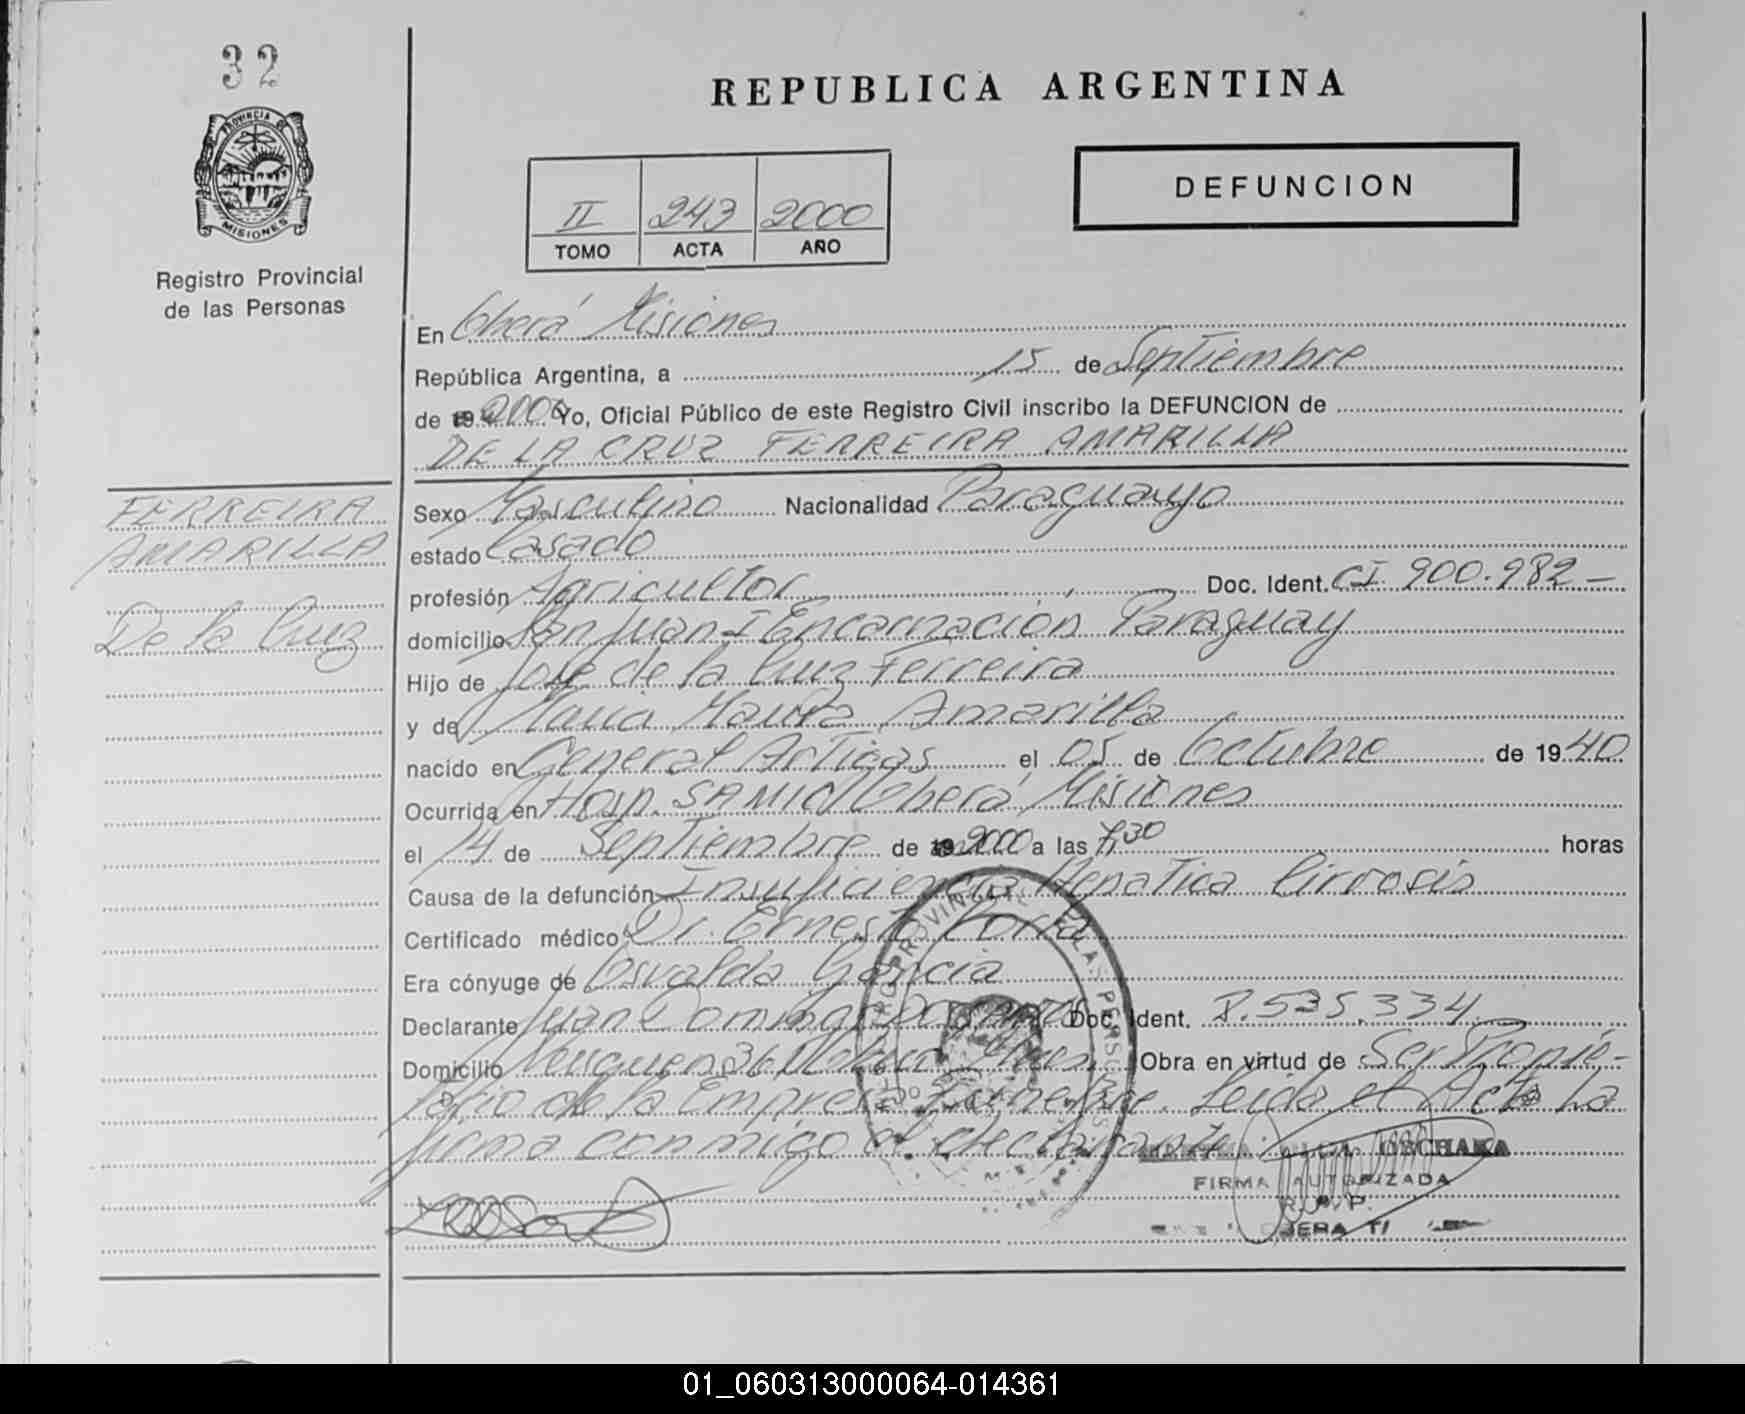 32
PROVINCIA DE
MISIONES
Registro Provincial
de las Personas
REPUBLICA ARGENTINA
DEFUNCION
II 243 2000
TOMO ACTA AÑO
En Oberá Misiones
República Argentina, a 15 de Septiembre
de 19 2000 Yo, Oficial Público de este Registro Civil inscribo la DEFUNCION de
DE LA CRUZ FERREIRA AMARILLA
FERREIRA
AMARILLA
De la Cruz
Sexo Masculino Nacionalidad Paraguayo
estado Casado
profesión Agricultor Doc. Ident. CI. 900.982-
domicilio San Juan I Encarnación Paraguay
Hijo de José de la Cruz Ferreira
y de Maria Amarilla
nacido en General Artigas el 05 de Octubre de 1940
Ocurrida en Hosp. SAMIC Oberá Misiones
el 14 de Septiembre de 19 2000 a las 7,30 horas
Causa de la defunción Insuficiencia Hepatica Cirrosis
Certificado médico Dr. Ernesto
Era cónyuge de Osvalda Garcia
Declarante Juan Domingo Doc. Ident. 8.535.334
Domicilio Neuquen 36 Obera Mnes. Obra en virtud de Ser Propie-
tario de la Empresa Funebre. Leida el Acta La
firma conmigo el declarante.
FIRMA AUTORIZADA
R. P. P.
OBERA
01_060313000064-014361